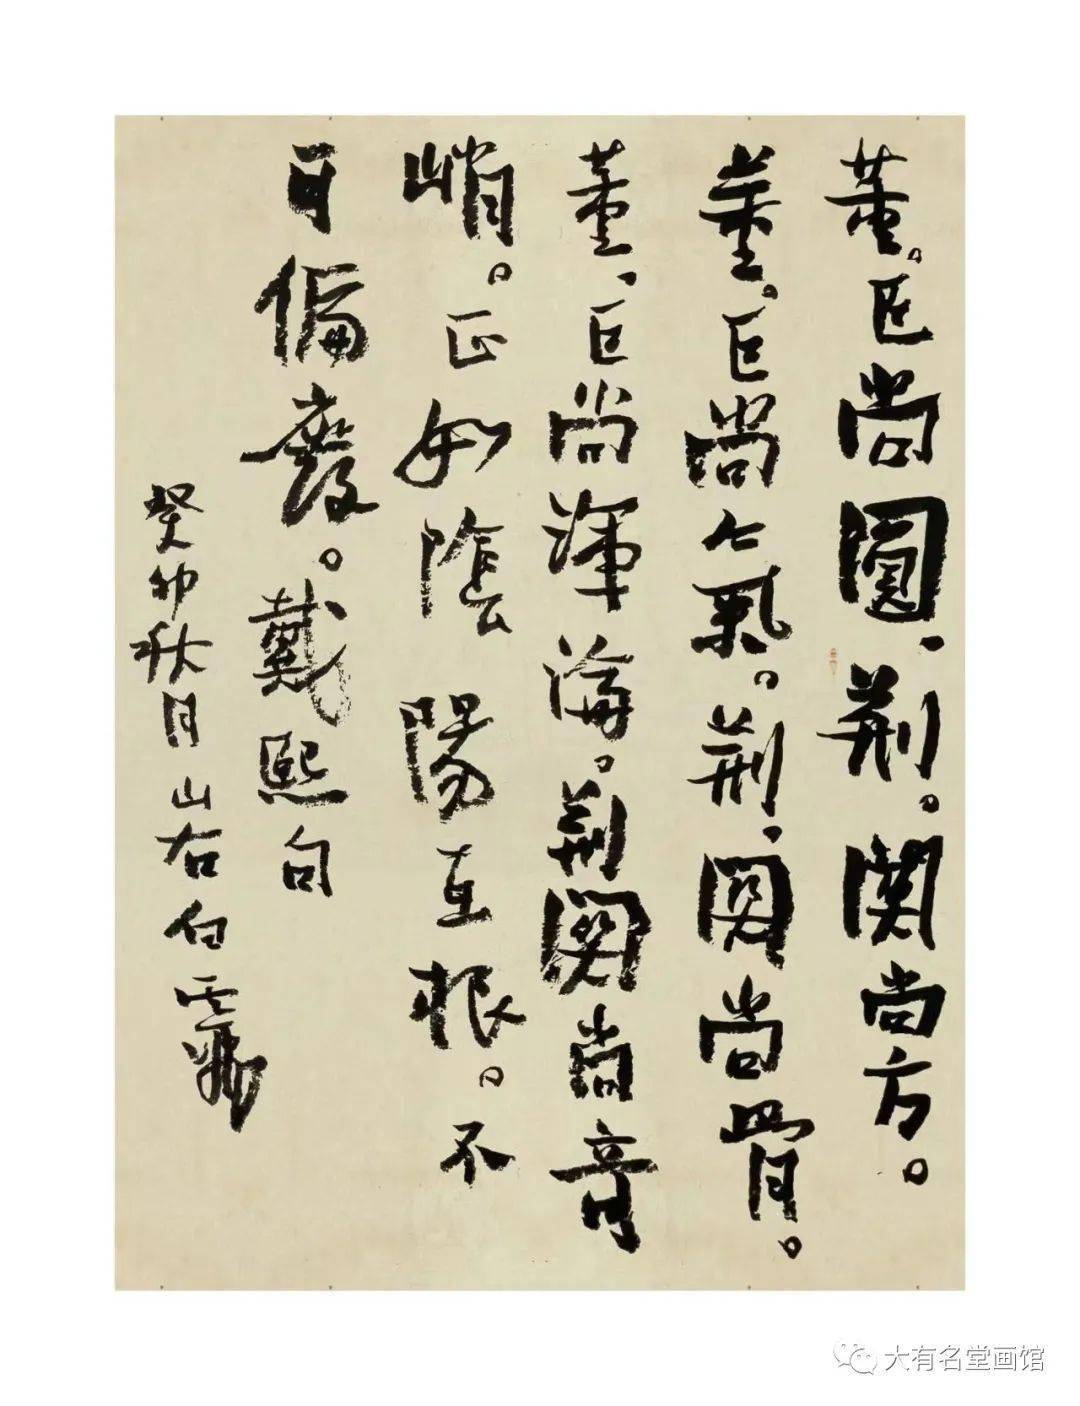 董。巨尚圓、荆。関尚方。
董。巨尚氣。荆、関尚骨。
董、巨尚渾淪。荆関尚竒
峭。正如陰陽互根。不
可偏廢。戴熙句
癸卯秋月山右白雲鄉
大有名堂画馆